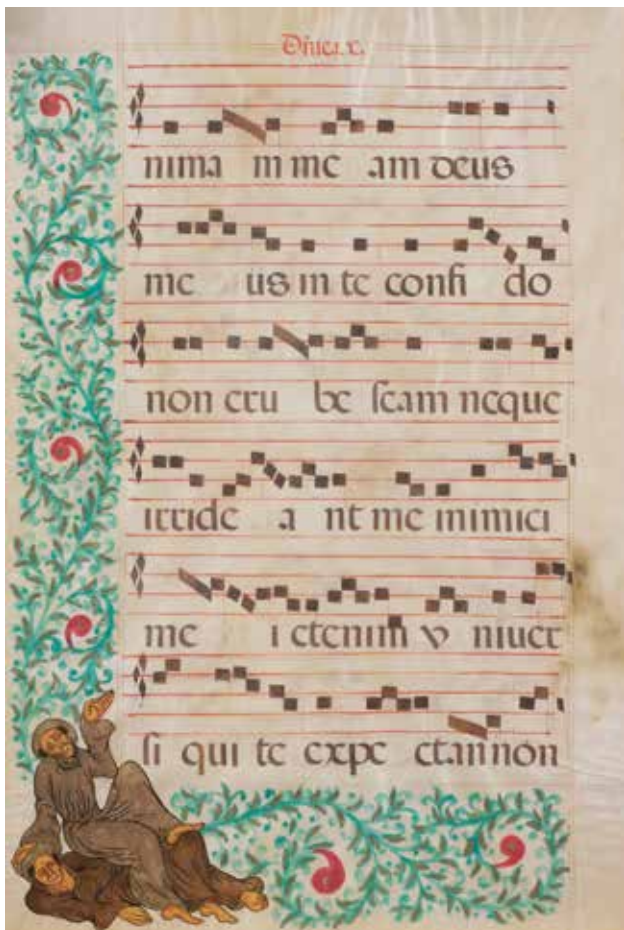 Dñica. x.
nima m me am deus
me us in te confi do
non eru be ſcam neque
irride a nt me inimici
me i etenim v niuer
ſi qui te expe ctan non